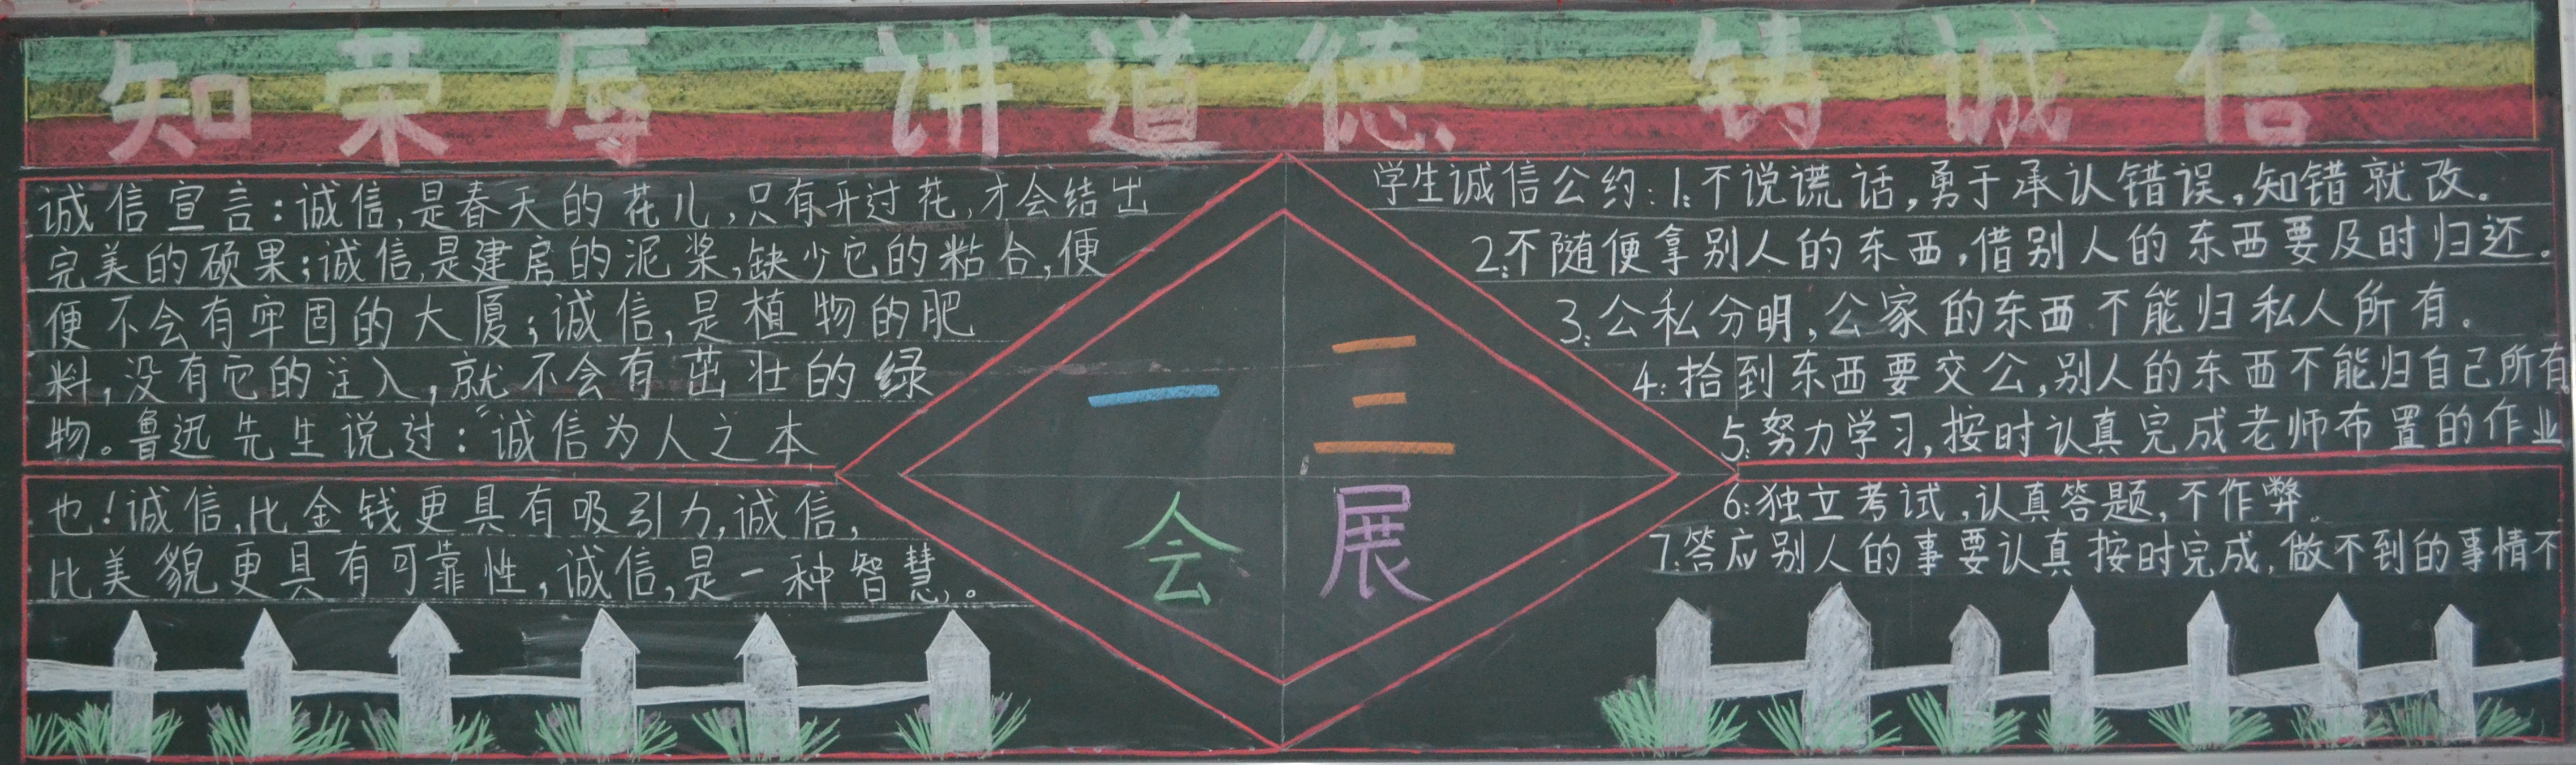 知荣辱 讲道德 铸诚信
诚信宣言:诚信,是春天的花儿,只有开过花,才会结出
完美的硕果;诚信,是建房的泥浆,缺少它的粘合,便
便不会有牢固的大厦;诚信,是植物的肥
料,没有它的注入,就不会有茁壮的绿
物。鲁迅先生说过:“诚信为人之本
也!诚信,比金钱更具有吸引力,诚信,
比美貌更具有可靠性,诚信,是一种智慧,。
一三
会展
学生诚信公约:1:不说谎话,勇于承认错误,知错就改。
2:不随便拿别人的东西,借别人的东西要及时归还。
3:公私分明,公家的东西不能归私人所有。
4:拾到东西要交公,别人的东西不能归自己所有
5:努力学习,按时认真完成老师布置的作业
6:独立考试,认真答题,不作弊。
7:答应别人的事要认真按时完成,做不到的事情不